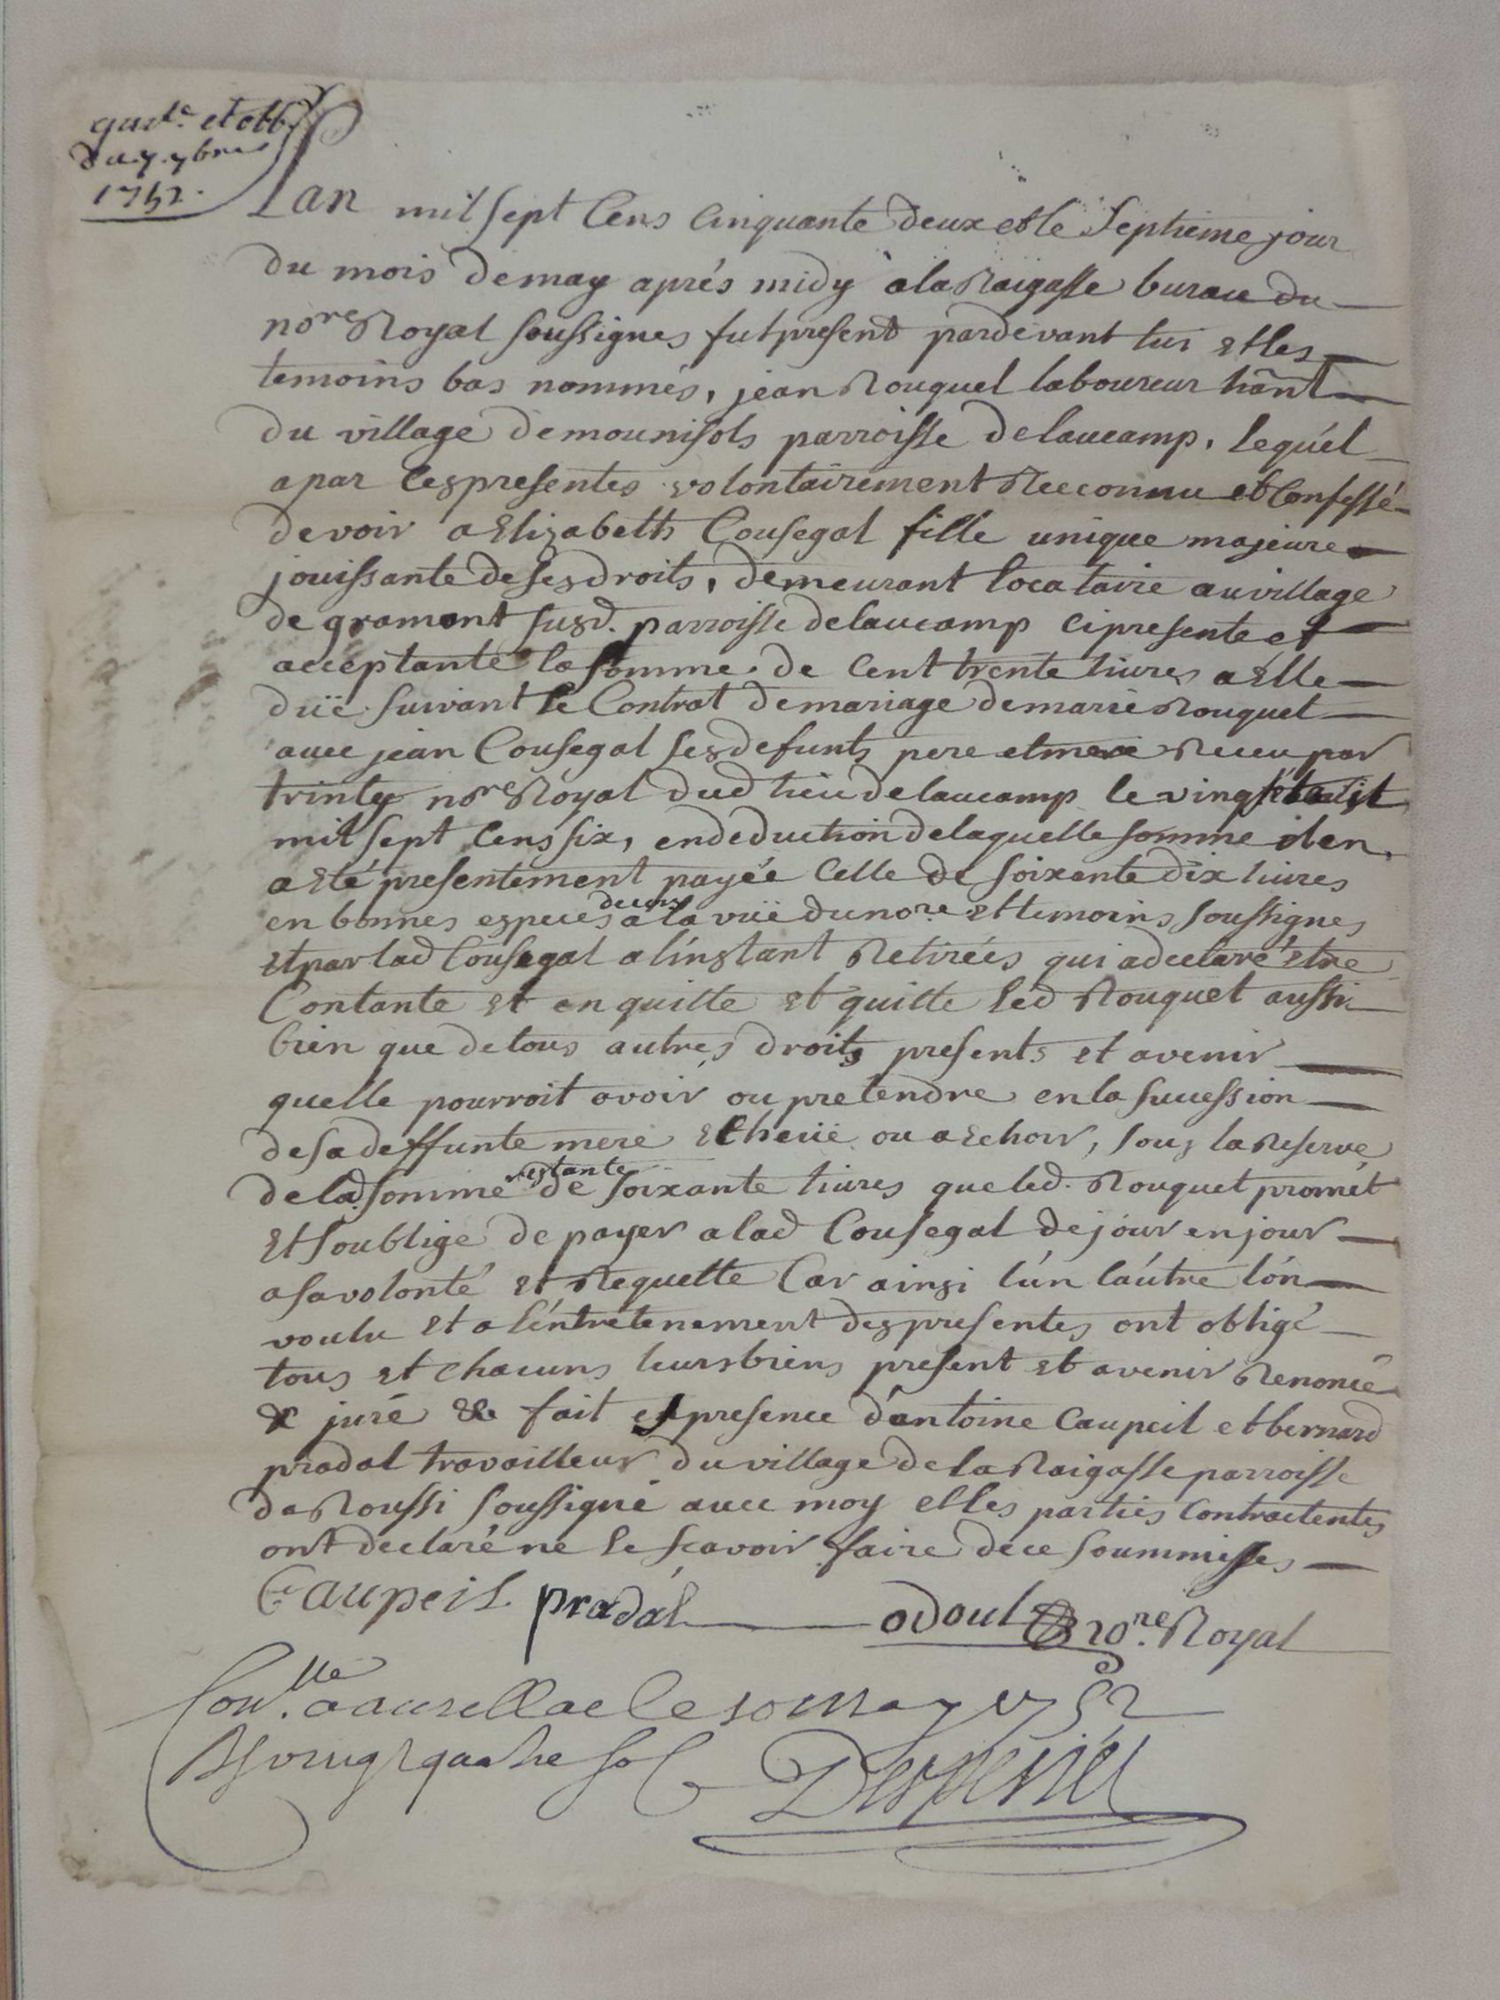 quit.ce et obb
du 7. 7bre
1752.
Lan mil sept Cens Cinquante deux et le Septieme jour
du mois de may aprés midy a la Raigasse bureau du
no.re Royal soussignes fut present pardevant lui et les
temoins bas nommés, jean Rouquet laboureur hãnt
du village de mounisols parroisse de laucamp, lequel
a par les presentes volontairement Recconnu et Confessé
devoir a Elizabeth Cousegal fille unique majeure
jouissante de ses droits, demeurant locataire au village
de gramont susd. parroisse de laucamp ci presente et
acceptante la somme de Cent trente livres a Elle
duë suivant le Contrat de mariage de marie Rouquet
avec jean Cousegal ses defunts pere et mere Receu par
trinty no.re Royal dud lieu de laucamp le vingt
mil sept Cens six, en deduction de laquelle somme il en
a Eté presentement payée Celle de soixante dix livres
en bonnes especes de cours a la vüe du no.re et temoins soussignes
et par lad Cousegal a l'instant Retirées qui a declaré être
Contante et en quitte et quitte led Rouquet aussi
bien que de tous autres droits presents et avenir
quelle pourroit avoir ou pretendre en la sucession
de sa deffunte mere Echeüe ou a Echoir, sous la Reserve
de lad. somme restante de soixante livres que led. Rouquet promét
et soublige de payer a lad Cousegal de jour en jour
a sa volonté et Requette Car ainsi l'ún laútre lón
voulu et a léntretenement des presentes ont obligé
tous et chacuns leurs biens present et avenir Renoncé
& juré && fait en presence dántoine Caupeil et bernard
pradal travailleur du village de la Raigasse parroisse
de Roussi soussigné avec moy et les parties Contractentes
ont declaré ne le scavoir faire de ce soummises
Caupeil pradál odoul no.re Royal
Con.lle a aurellac le 10 may 1752
R vingt quatre sols